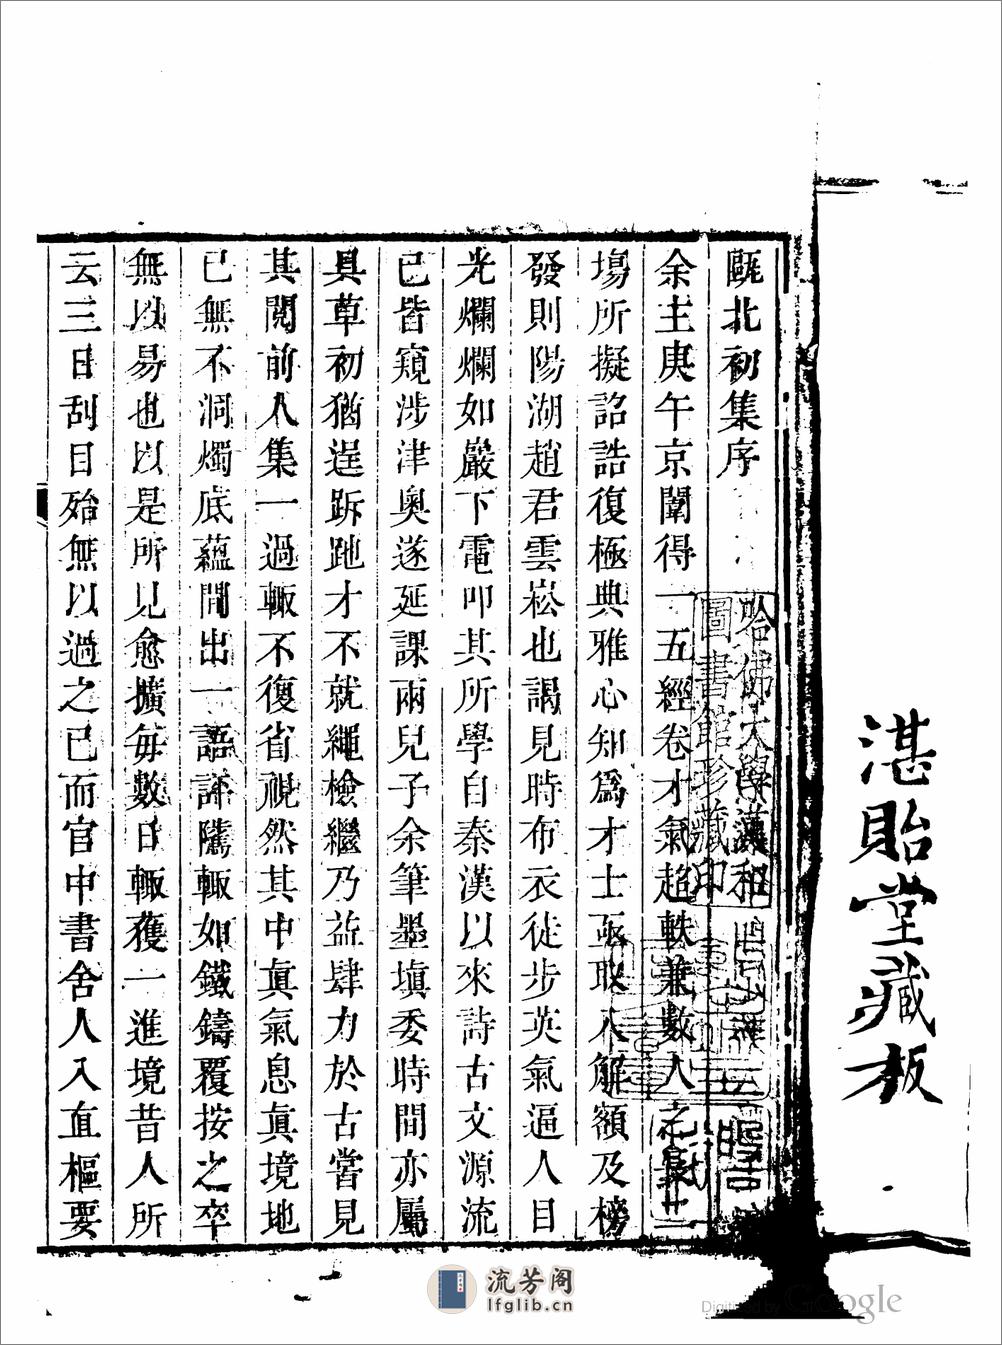 湛貽堂藏板
甌北初集序
余主庚午京闈得一五經卷才氣超軼兼數人之
塲所擬詔誥復極典雅心知爲才士亟取入解額及榜
發則陽湖趙君雲崧也謁見時布衣徒步英氣逼人目
光爛爛如巖下電叩其所學自秦漢以來詩古文源流
已皆窺涉津奧遂延課兩兒子余筆墨塡委時間亦屬
具草初猶逞跅跑才不就繩檢繼乃益肆力於古嘗見
其閱前人集一過輙不復省視然其中眞氣息眞境地
已無不洞燭底蘊間出一語評隲輙如鐵鑄覆按之卒
無以易也以是所見愈擴毎數日輙獲一進境昔人所
云三日刮目殆無以過之已而官中書舍人入直樞要
哈佛大學漢和
圖書館珍藏印
流芳阁
lfglib.cn
Digitized by Google